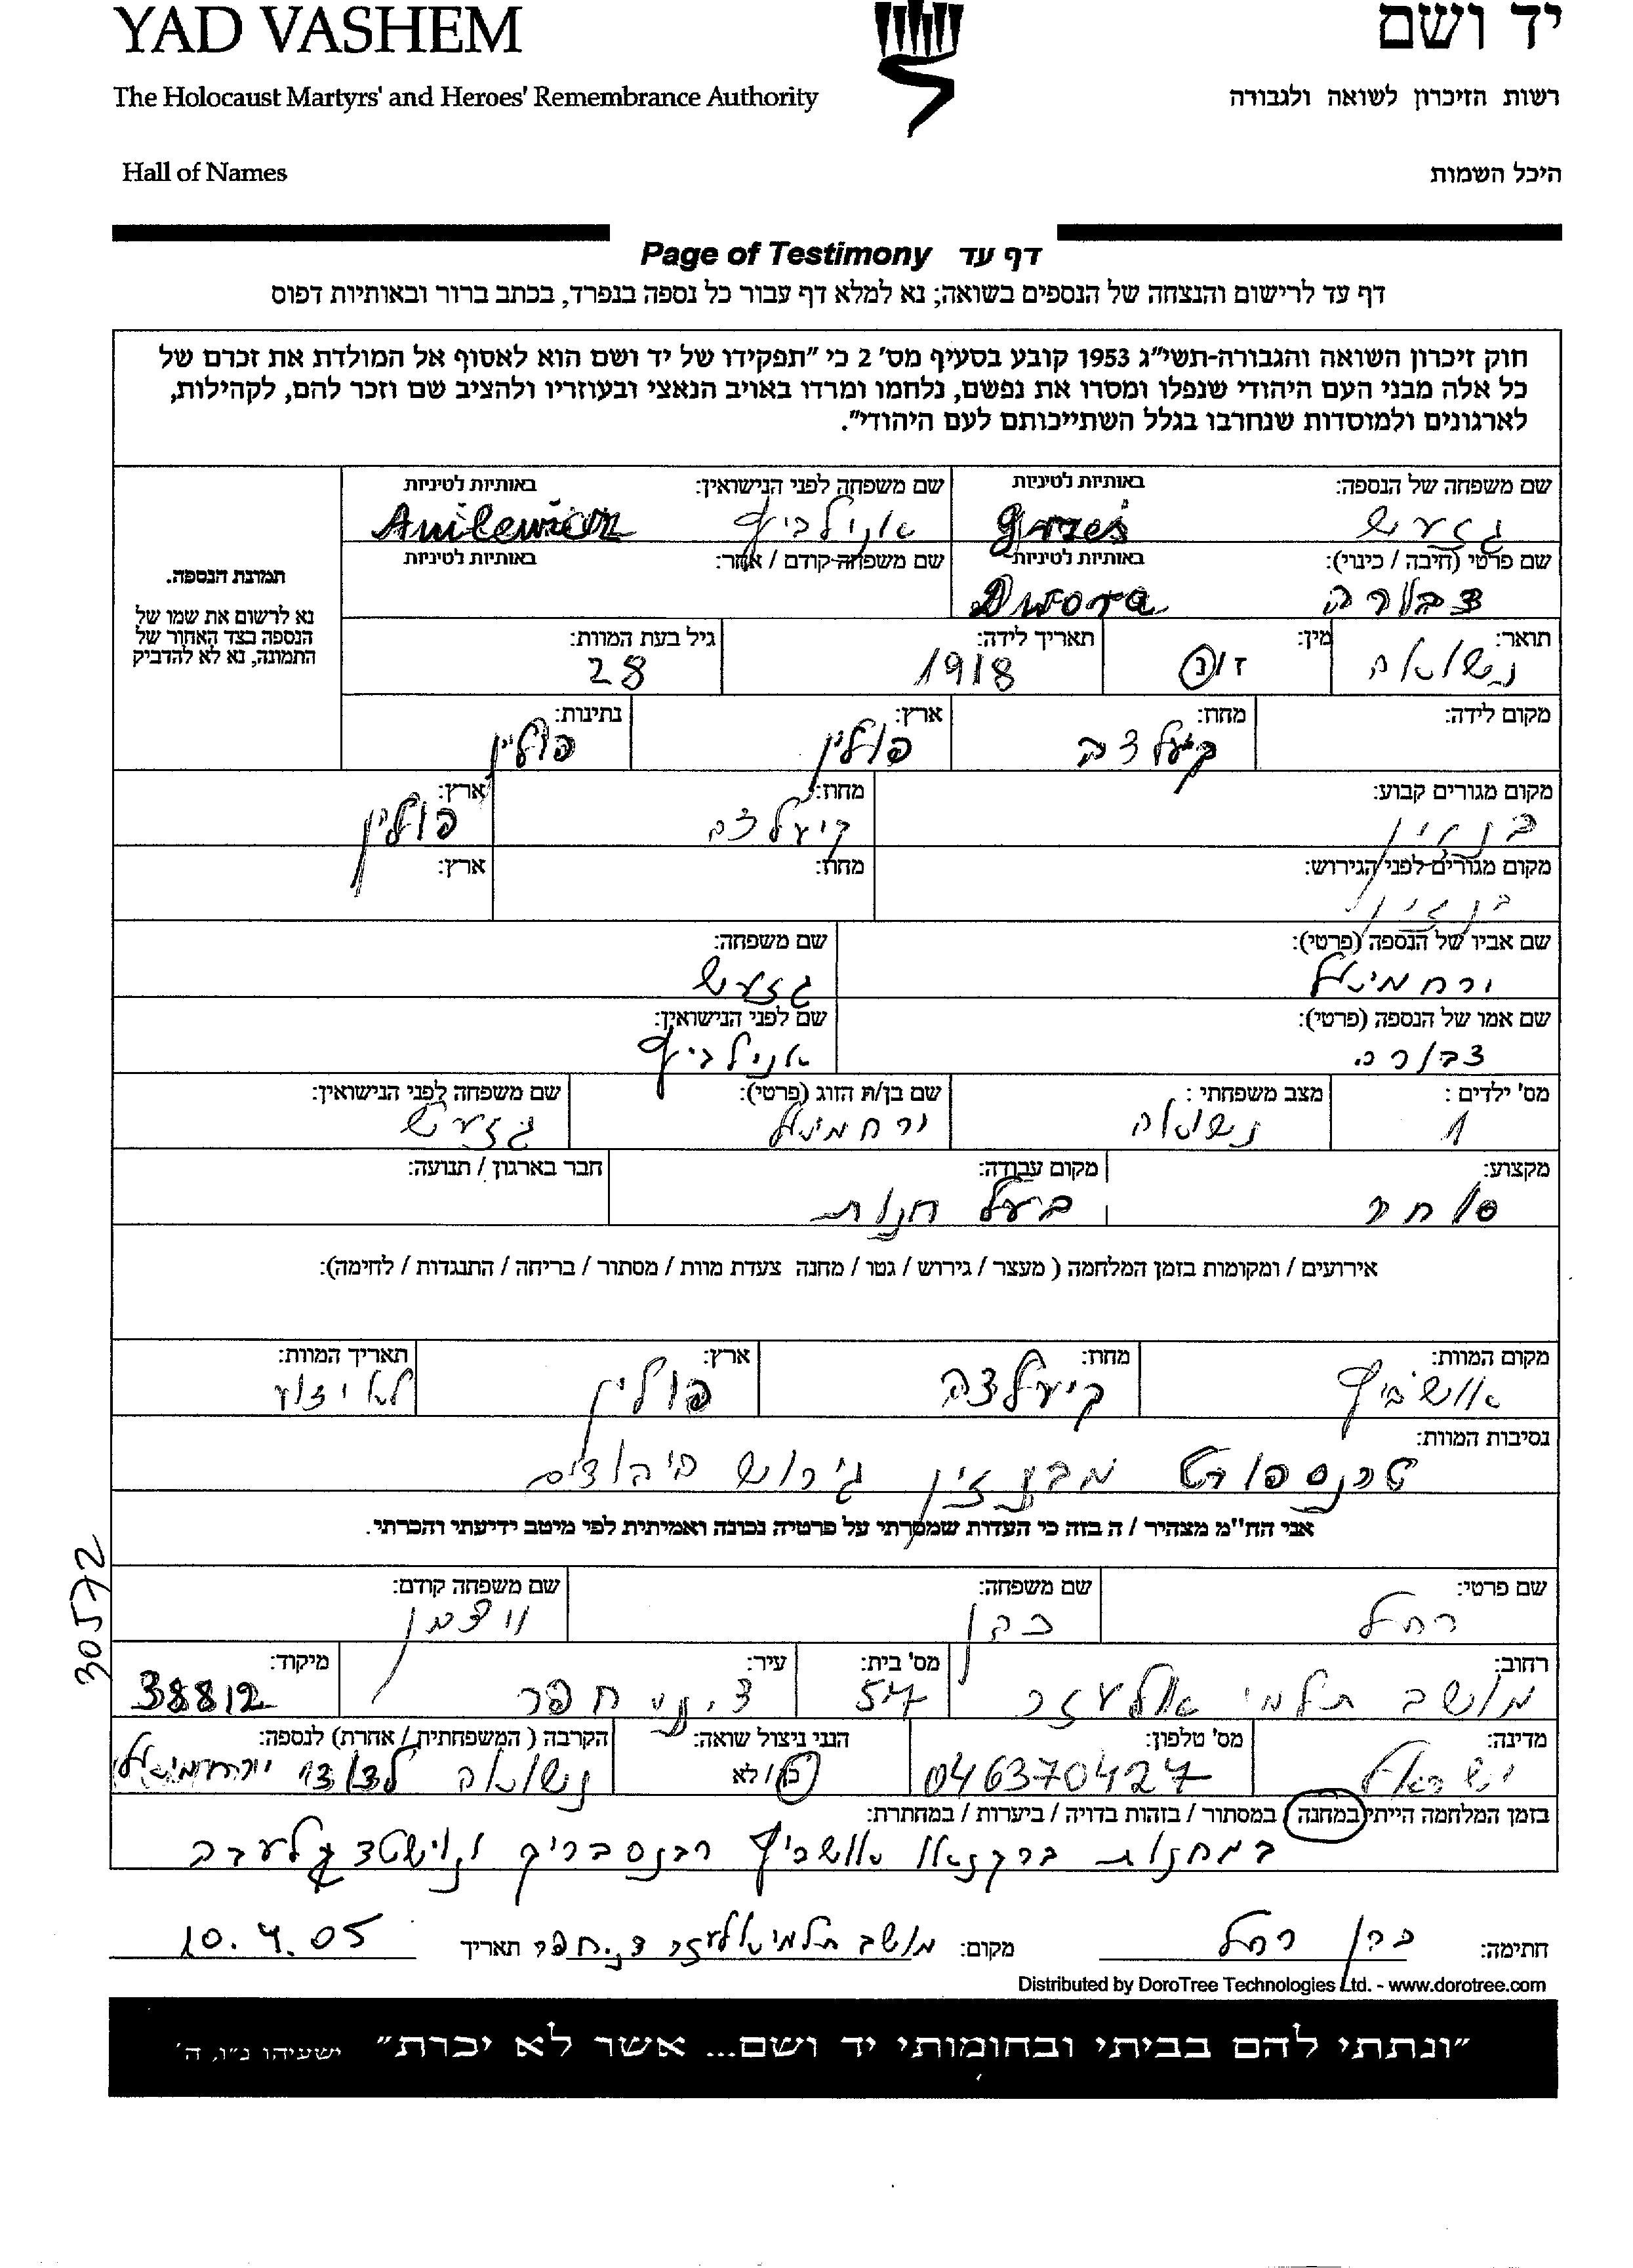 YAD VASHEM יד ושם
The Holocaust Martyrs' and Heroes' Remembrance Authority רשות הזיכרון לשואה ולגבורה
Hall of Names היכל השמות
Page of Testimony דף עד
דף עד לרישום והנצחה של הנספים בשואה; נא למלא דף עבור כל נספה בנפרד, בכתב ברור ובאותיות דפוס
חוק זיכרון השואה והגבורה-תשי"ג 1953 קובע בסעיף מס' 2 כי "תפקידו של יד ושם הוא לאסוף אל המולדת את זכרם של
כל אלה מבני העם היהודי שנפלו ומסרו את נפשם, נלחמו ומרדו באויב הנאצי ובעוזריו ולהציב שם וזכר להם, לקהילות,
לארגונים ולמוסדות שנחרבו בגלל השתייכותם לעם היהודי".
שם משפחה של הנספה: באותיות לטיניות שם משפחה לפני הנישואין: באותיות לטיניות
גזעש אנילביץ
שם פרטי (חיבה / כינוי): באותיות לטיניות שם משפחה קודם / אחר: באותיות לטיניות
דבורה Dwora
תמונת הנספה.
נא לרשום את שמו של
הנספה בצד האחור של
התמונה, נא לא להדביק
תואר: מין: תאריך לידה: גיל בעת המוות:
נשואה ז/נ 1918 28
מקום לידה: מחוז: ארץ: נתינות:
קיעלצה פולין פולין
מקום מגורים קבוע: מחוז: ארץ:
בנדזין קיעלצה פולין
מקום מגורים לפני הגירוש: מחוז: ארץ:
בנדזין
שם אביו של הנספה (פרטי): שם משפחה:
ירחמיאל גזעש
שם אמו של הנספה (פרטי): שם לפני הנישואין:
דבורה אנילביץ
מס' ילדים : מצב משפחתי : שם בן/ת הזוג (פרטי): שם משפחה לפני הנישואין:
1 נשואה ירחמיאל גזעש
מקצוע: מקום עבודה: חבר בארגון / תנועה:
סוחר בעל חנות
אירועים / ומקומות בזמן המלחמה ( מעצר / גירוש / גטו / מחנה צעדת מוות / מסתור / בריחה / התנגדות / לחימה):
מקום המוות: מחוז: ארץ: תאריך המוות:
אושביץ קיעלצה פולין לא ידוע
נסיבות המוות:
טרנספורט מבנדזין גירוש יהודים
אני הח"מ מצהיר / ה בזה כי העדות שמסרתי על פרטיה נכונה ואמיתית לפי מיטב ידיעתי והכרתי.
30572
שם פרטי: שם משפחה: שם משפחה קודם:
רחל כהן
רחוב: מס' בית: עיר: מיקוד:
מושב תלמי אלעזר 54 ד.נ. חפר 38812
מדינה: מס' טלפון: הנני ניצול שואה: הקרבה ( המשפחתית / אחרת) לנספה:
ישראל 046370427 כן / לא נשואה לדודי ירחמיאל
בזמן המלחמה הייתי במחנה / במסתור / בזהות בדויה / ביערות / במחתרת:
במחנות בירקנאו אושביץ רבנסבריק
חתימה: כהן רחל מקום: מושב תלמי אלעזר ד.נ. חפר תאריך 10.4.05
Distributed by DoroTree Technologies Ltd. - www.dorotree.com
"ונתתי להם בביתי ובחומותי יד ושם... אשר לא יכרת" ישעיהו נ"ו, ה'